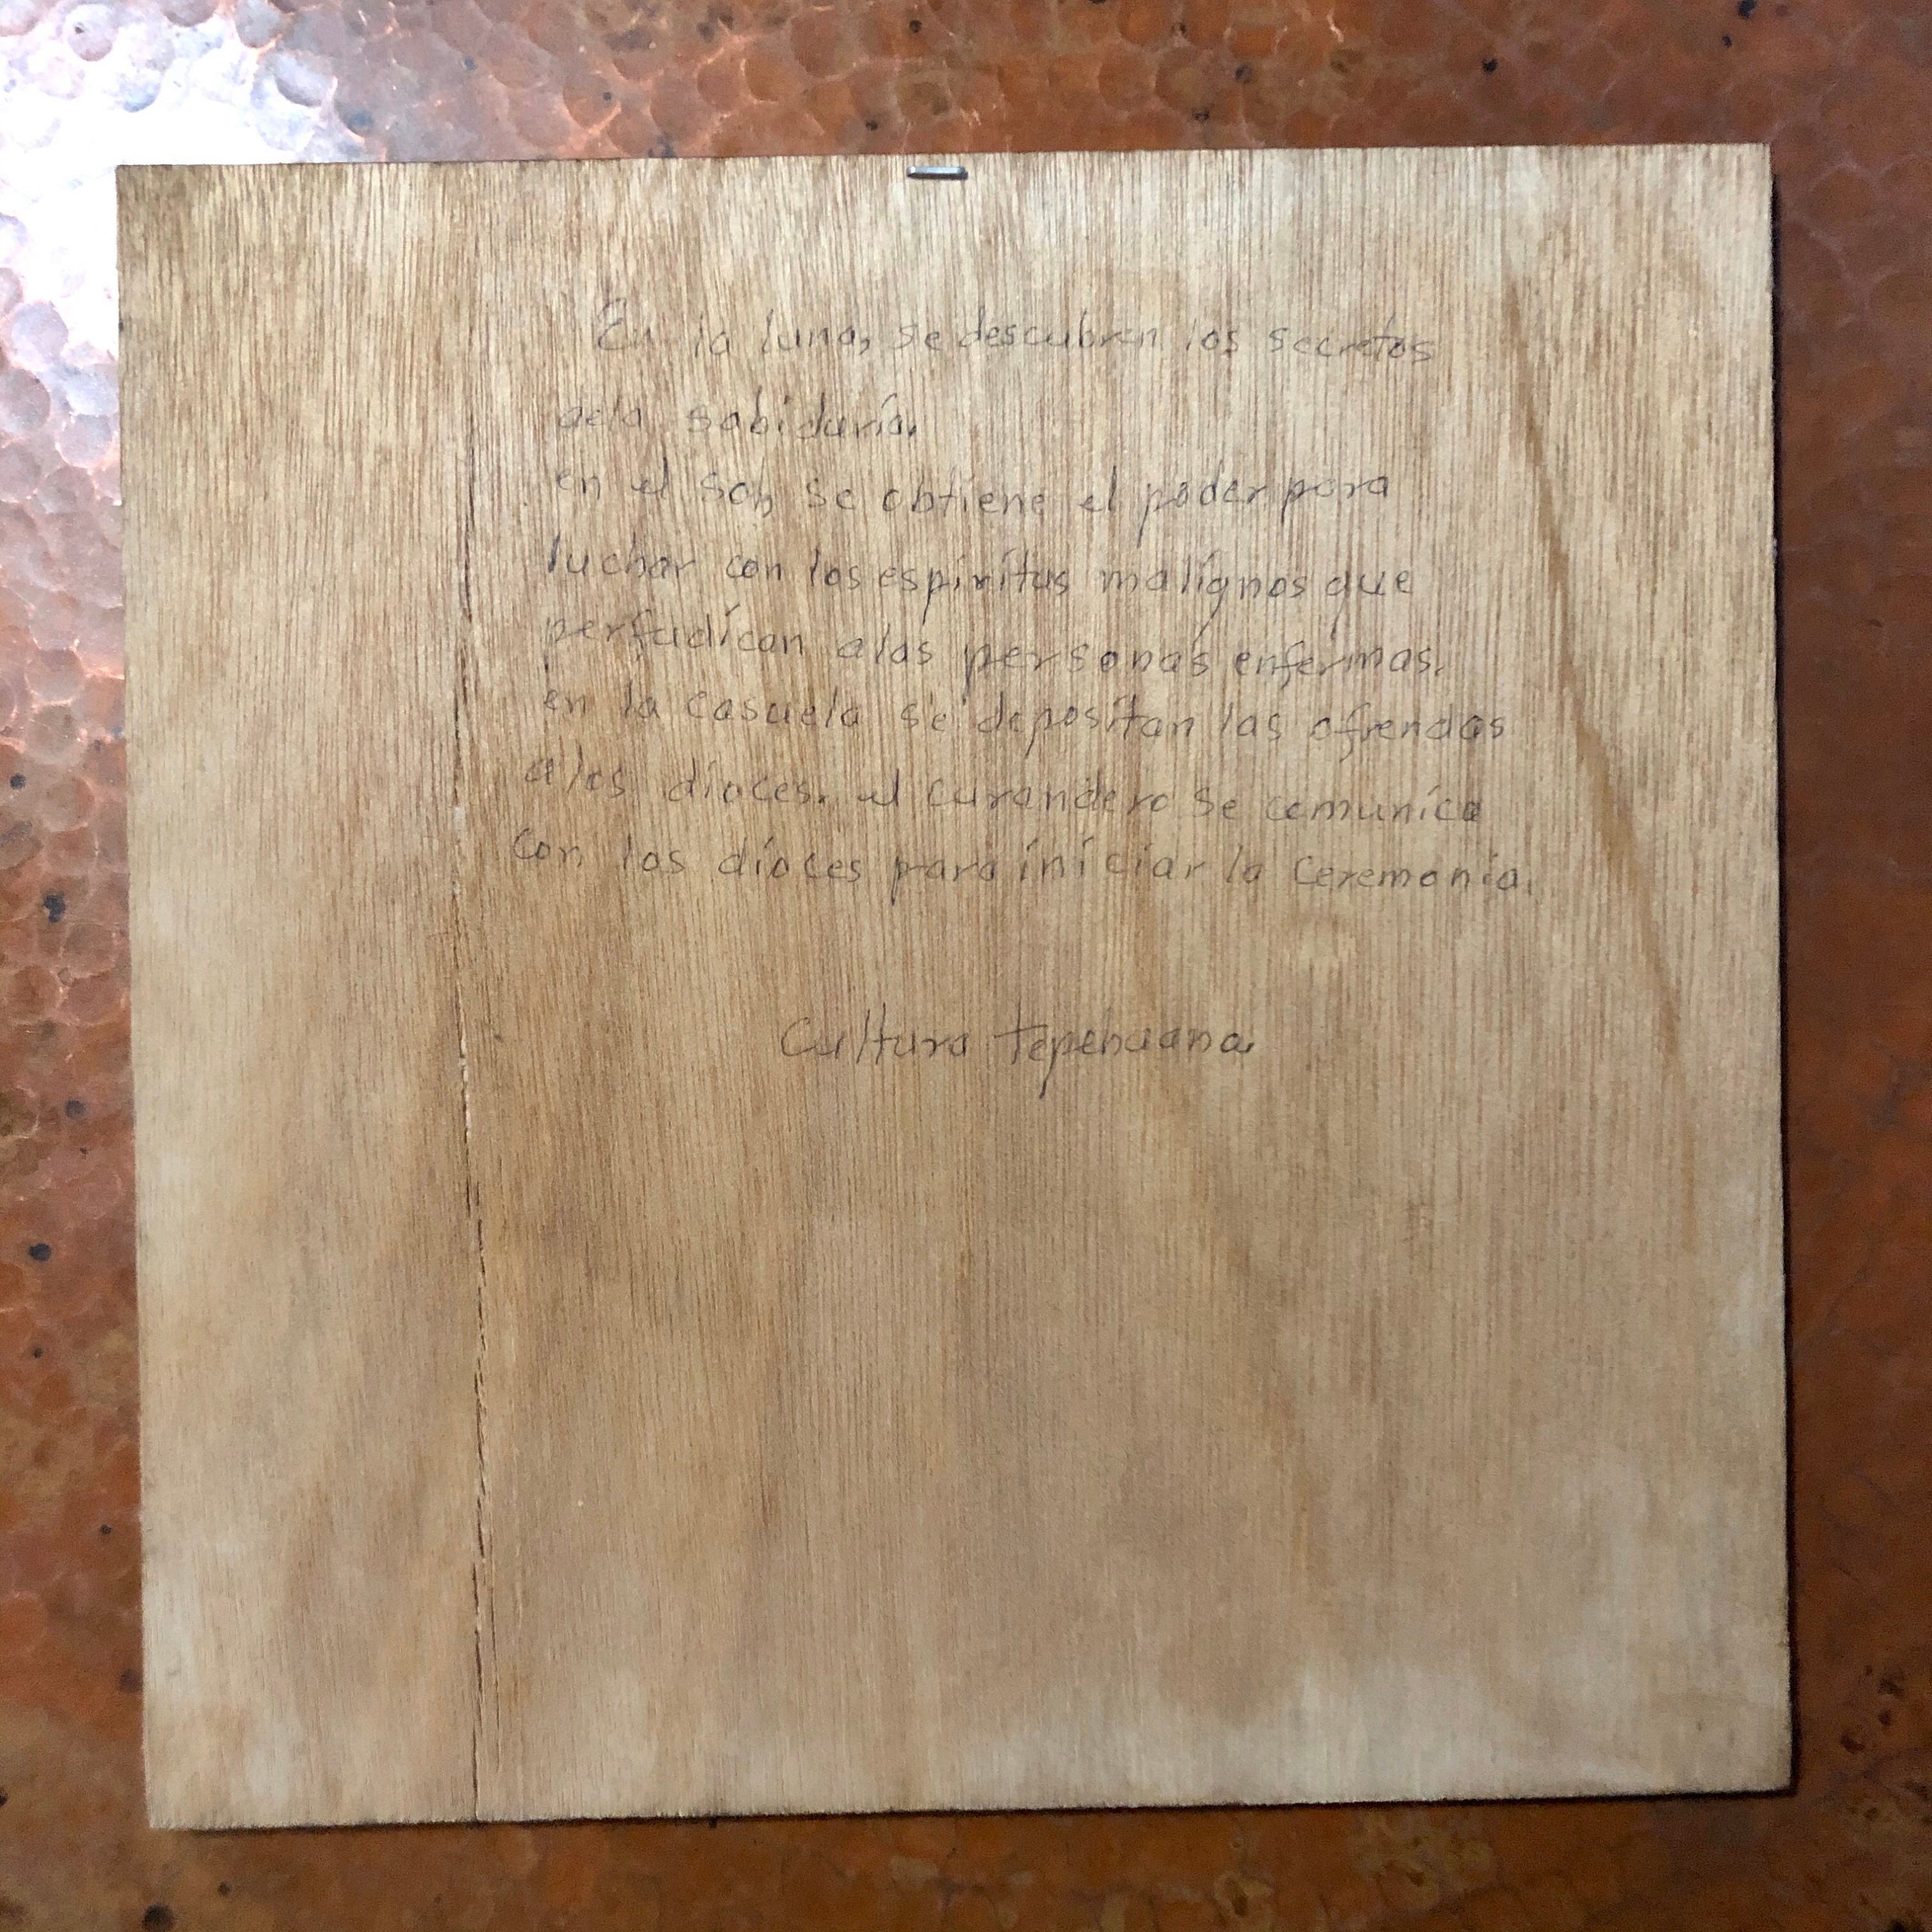 En la luna, se descubren los secretos
dela sabiduría.
en el sol, se obtiene el poder para
luchar con los espiritus malignos que
perfudican alas personas enfermas.
en la casuela se depositan las ofrendas
alos dioces. el curandero se comunica
con los dioces para iniciar la ceremonia.
Cultura tepehuana